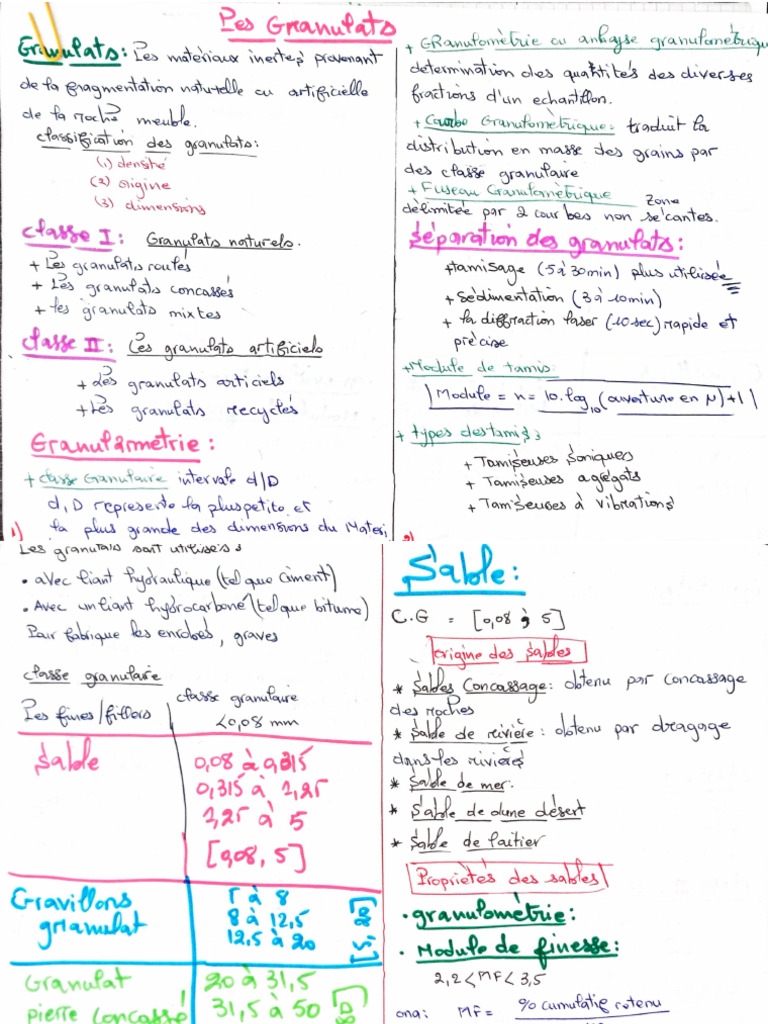 Les Granulats
Granulats: Les matériaux inertes provenant
de la fragmentation naturelle ou artificielle
de la roche meuble.
classification des granulats:
(1) densité
(2) origine
(3) dimensions
Classe I: Granulats naturels.
+ Les granulats roulés
+ Les granulats concassés
+ les granulats mixtes
Classe II: Les granulats artificiels
+ Les granulats articiels
+ Les granulats recyclés
Granularmetrie:
+ classe Granulaire intervale d/D
d, D represente la plus petite et
la plus grande des dimensions du Materi
1)
+ GRanulométrie ou anlayse granulométrique
determination des quantités des diverses
fractions d'un echantillon.
+ Courbe Granulométrique: traduit la
distribution en masse des grains par
des classe granulaire
+ Fuseau Granulométrique Zone
délimitée par 2 courbes non sécantes.
Séparation des granulats:
+ tamisage (5 à 30 min) plus utilisée
+ sédimentation (3 à 10 min)
+ la diffraction laser (10 sec) rapide et
précise
+ Module de tamis
| Module = n = 10.log10 (ouverture en μ) + 1 |
+ types des tamis:
+ Tamiseuses soniques
+ Tamiseuses agrégats
+ Tamiseuses à vibrations
2)
Les granulats sont utilisés:
• avec liant hydraulique (tel que ciment)
• Avec un liant hydrocarboné (tel que bitume)
Pour fabrique les enrobés, graves
classe granulaire
Les fines/fillers classe granulaire
<0,08 mm
Sable 0,08 à 0,315
0,315 à 1,25
1,25 à 5
[0,08, 5]
Gravillons 5 à 8
granulat 8 à 12,5
12,5 à 20
[5, 20]
Granulat 20 à 31,5
pierre concassé 31,5 à 50
Sable:
C.G = [0,08 ; 5]
origine des sables
* Sables Concassage: obtenu par concassage
des roches
* Sable de rivière: obtenu par dragage
dans les rivières
* Sable de mer.
* Sable de dune désert
* Sable de laitier
Propriétés des sables
• granulométrie:
• Module de finesse:
2,2 < MF < 3,5
ona: MF = % cumulatif retenu